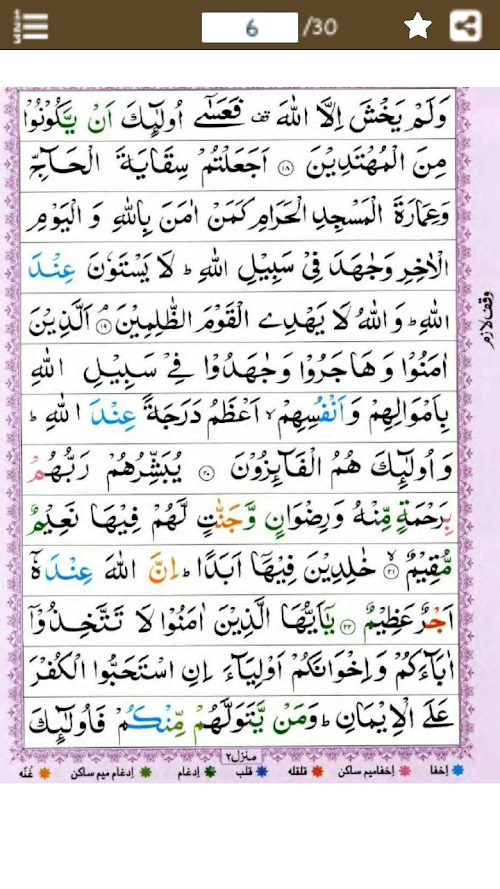 6 /30
وَلَمْ يَخْشَ اِلَّا اللّٰهَ قف فَعَسٰٓى اُولٰٓئِكَ اَنْ يَّكُوْنُوْا
مِنَ الْمُهْتَدِيْنَ ۝۱۸ اَجَعَلْتُمْ سِقَايَةَ الْحَآجِّ
وَعِمَارَةَ الْمَسْجِدِ الْحَرَامِ كَمَنْ اٰمَنَ بِاللّٰهِ وَ الْيَوْمِ
الْاٰخِرِ وَجٰهَدَ فِىْ سَبِيْلِ اللّٰهِ ؕ لَا يَسْتَوٗنَ عِنْدَ
اللّٰهِ ؕ وَ اللّٰهُ لَا يَهْدِى الْقَوْمَ الظّٰلِمِيْنَ ۝۱۹ اَلَّذِيْنَ
وقف لازم
اٰمَنُوْا وَ هَاجَرُوْا وَجٰهَدُوْا فِىْ سَبِيْلِ اللّٰهِ
بِاَمْوَالِهِمْ وَاَنْفُسِهِمْ ۙ اَعْظَمُ دَرَجَةً عِنْدَ اللّٰهِ ؕ
وَ اُولٰٓئِكَ هُمُ الْفَآئِزُوْنَ ۝۲۰ يُبَشِّرُهُمْ رَبُّهُمْ
بِرَحْمَةٍ مِّنْهُ وَرِضْوَانٍ وَّجَنّٰتٍ لَّهُمْ فِيْهَا نَعِيْمٌ
مُّقِيْمٌ ۙ۝۲۱ خٰلِدِيْنَ فِيْهَاۤ اَبَدًا ؕ اِنَّ اللّٰهَ عِنْدَهٗۤ
اَجْرٌ عَظِيْمٌ ۝۲۲ يٰۤاَيُّهَا الَّذِيْنَ اٰمَنُوْا لَا تَتَّخِذُوْۤا
اٰبَآءَكُمْ وَاِخْوَانَكُمْ اَوْلِيَآءَ اِنِ اسْتَحَبُّوا الْكُفْرَ
عَلَى الْاِيْمَانِ ؕ وَمَنْ يَّتَوَلَّهُمْ مِّنْكُمْ فَاُولٰٓئِكَ
منزل۲
اِخفا اِخفامیم ساکن قلقله قلب اِدغام اِدغام میم ساکن غُنّه